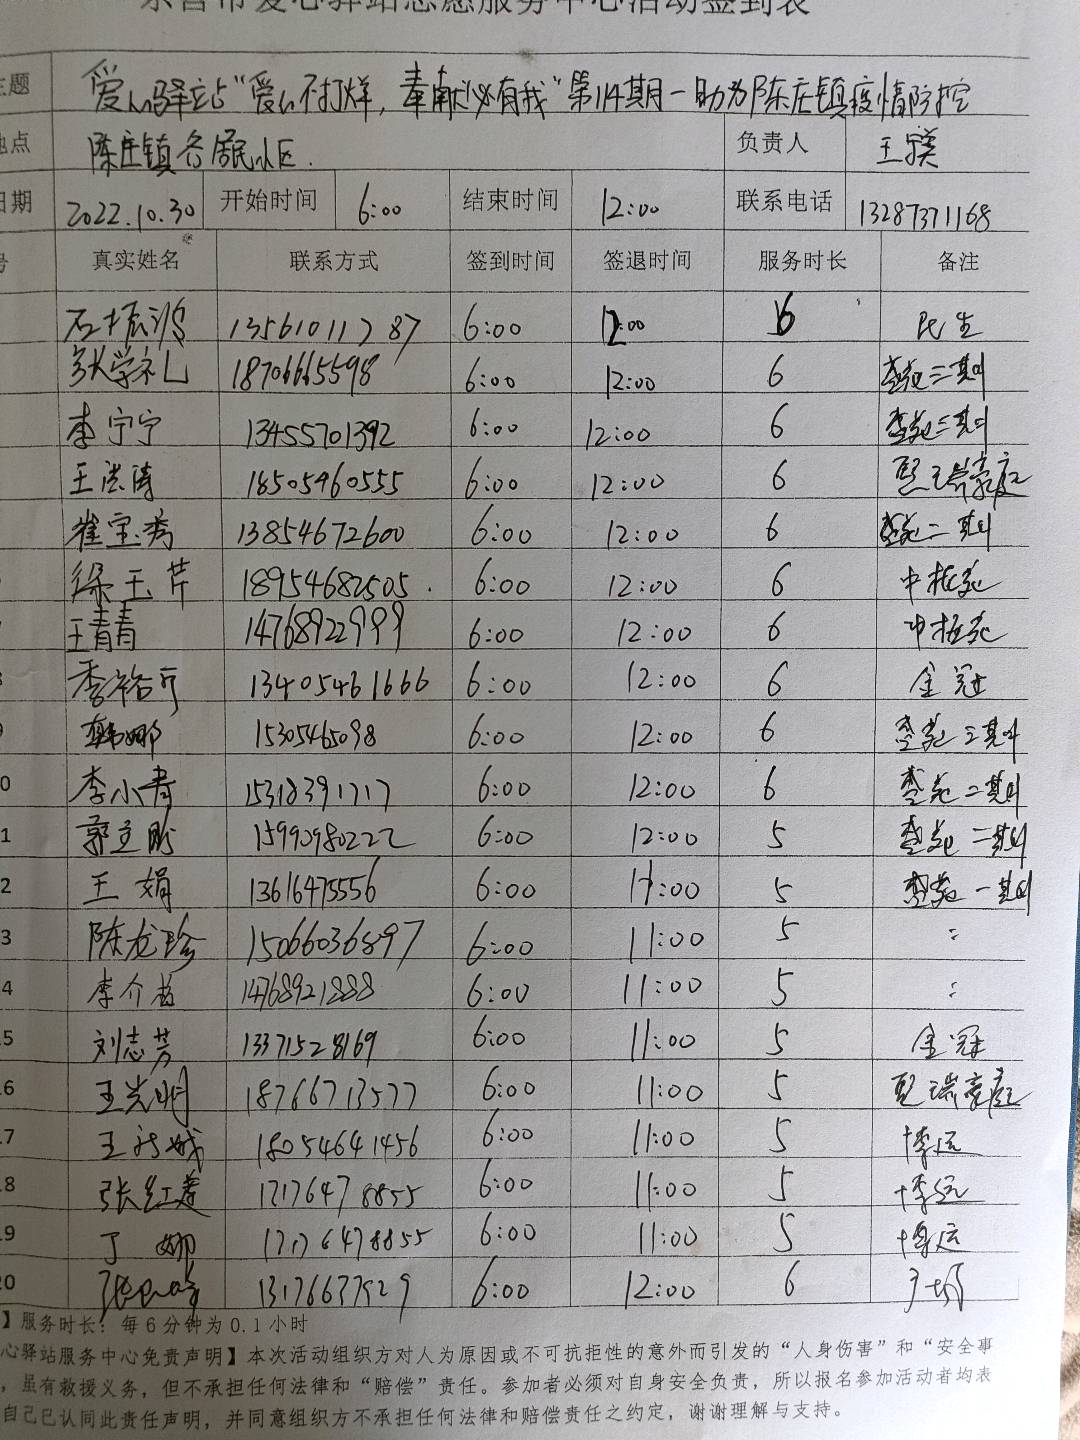 东营市爱心驿站志愿服务中心活动签到表
主题 爱心驿站“爱心不打烊，奉献必有我”第114期－助力陈庄镇疫情防控
地点 陈庄镇各居民小区. 负责人 王
日期 2022.10.30 开始时间 6:00 结束时间 12:00 联系电话 13287371168
号 真实姓名 联系方式 签到时间 签退时间 服务时长 备注
石振鸿 13561011787 6:00 12:00 6 民生
张学礼 18706665598 6:00 12:00 6 三期
李宁宁 13455701392 6:00 12:00 6 三期
王洪涛 18505460555 6:00 12:00 6 熙瑞豪庭
崔宝秀 13854672600 6:00 12:00 6 二期
徐玉芹 18954682505. 6:00 12:00 6 中 苑
7 王青青 14768922999 6:00 12:00 6 中 苑
8 李裕可 13405461666 6:00 12:00 6 金冠
9 韩娜 15305465098 6:00 12:00 6 三期
10 李小青 15318391717 6:00 12:00 6 二期
11 郭立刚 15990980222 6:00 12:00 5 二期
12 王娟 13616475556 6:00 11:00 5 一期
13 陈龙珍 15066036897 6:00 11:00 5 :
14 李介 14768921888 6:00 11:00 5 :
15 刘志芳 13371528169 6:00 11:00 5 金冠
16 王光明 18766713577 6:00 11:00 5 熙瑞豪庭
17 王 娥 18054641456 6:00 11:00 5 博远
18 张红莲 17176478855 6:00 11:00 5 博远
19 丁娜 17176478855 6:00 11:00 5 博远
20 张 峰 13176677529 6:00 12:00 6 广场
】服务时长：每6分钟为0.1小时
心驿站服务中心免责声明】本次活动组织方对人为原因或不可抗拒性的意外而引发的“人身伤害”和“安全事
，虽有救援义务，但不承担任何法律和“赔偿”责任。参加者必须对自身安全负责，所以报名参加活动者均表
自己已认同此责任声明，并同意组织方不承担任何法律和赔偿责任之约定，谢谢理解与支持。